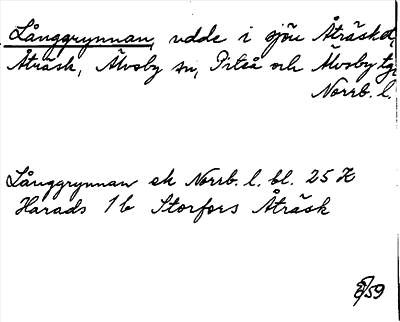 Långgrynnan, udde i sjön Åträsket,
Åträsk, Älvsby sn, Piteå och Älvsby tg,
Norrb. l.
Långgrynnan ek Norrb. l. bl. 25 K
Harads 1b Storfors Åträsk
/59